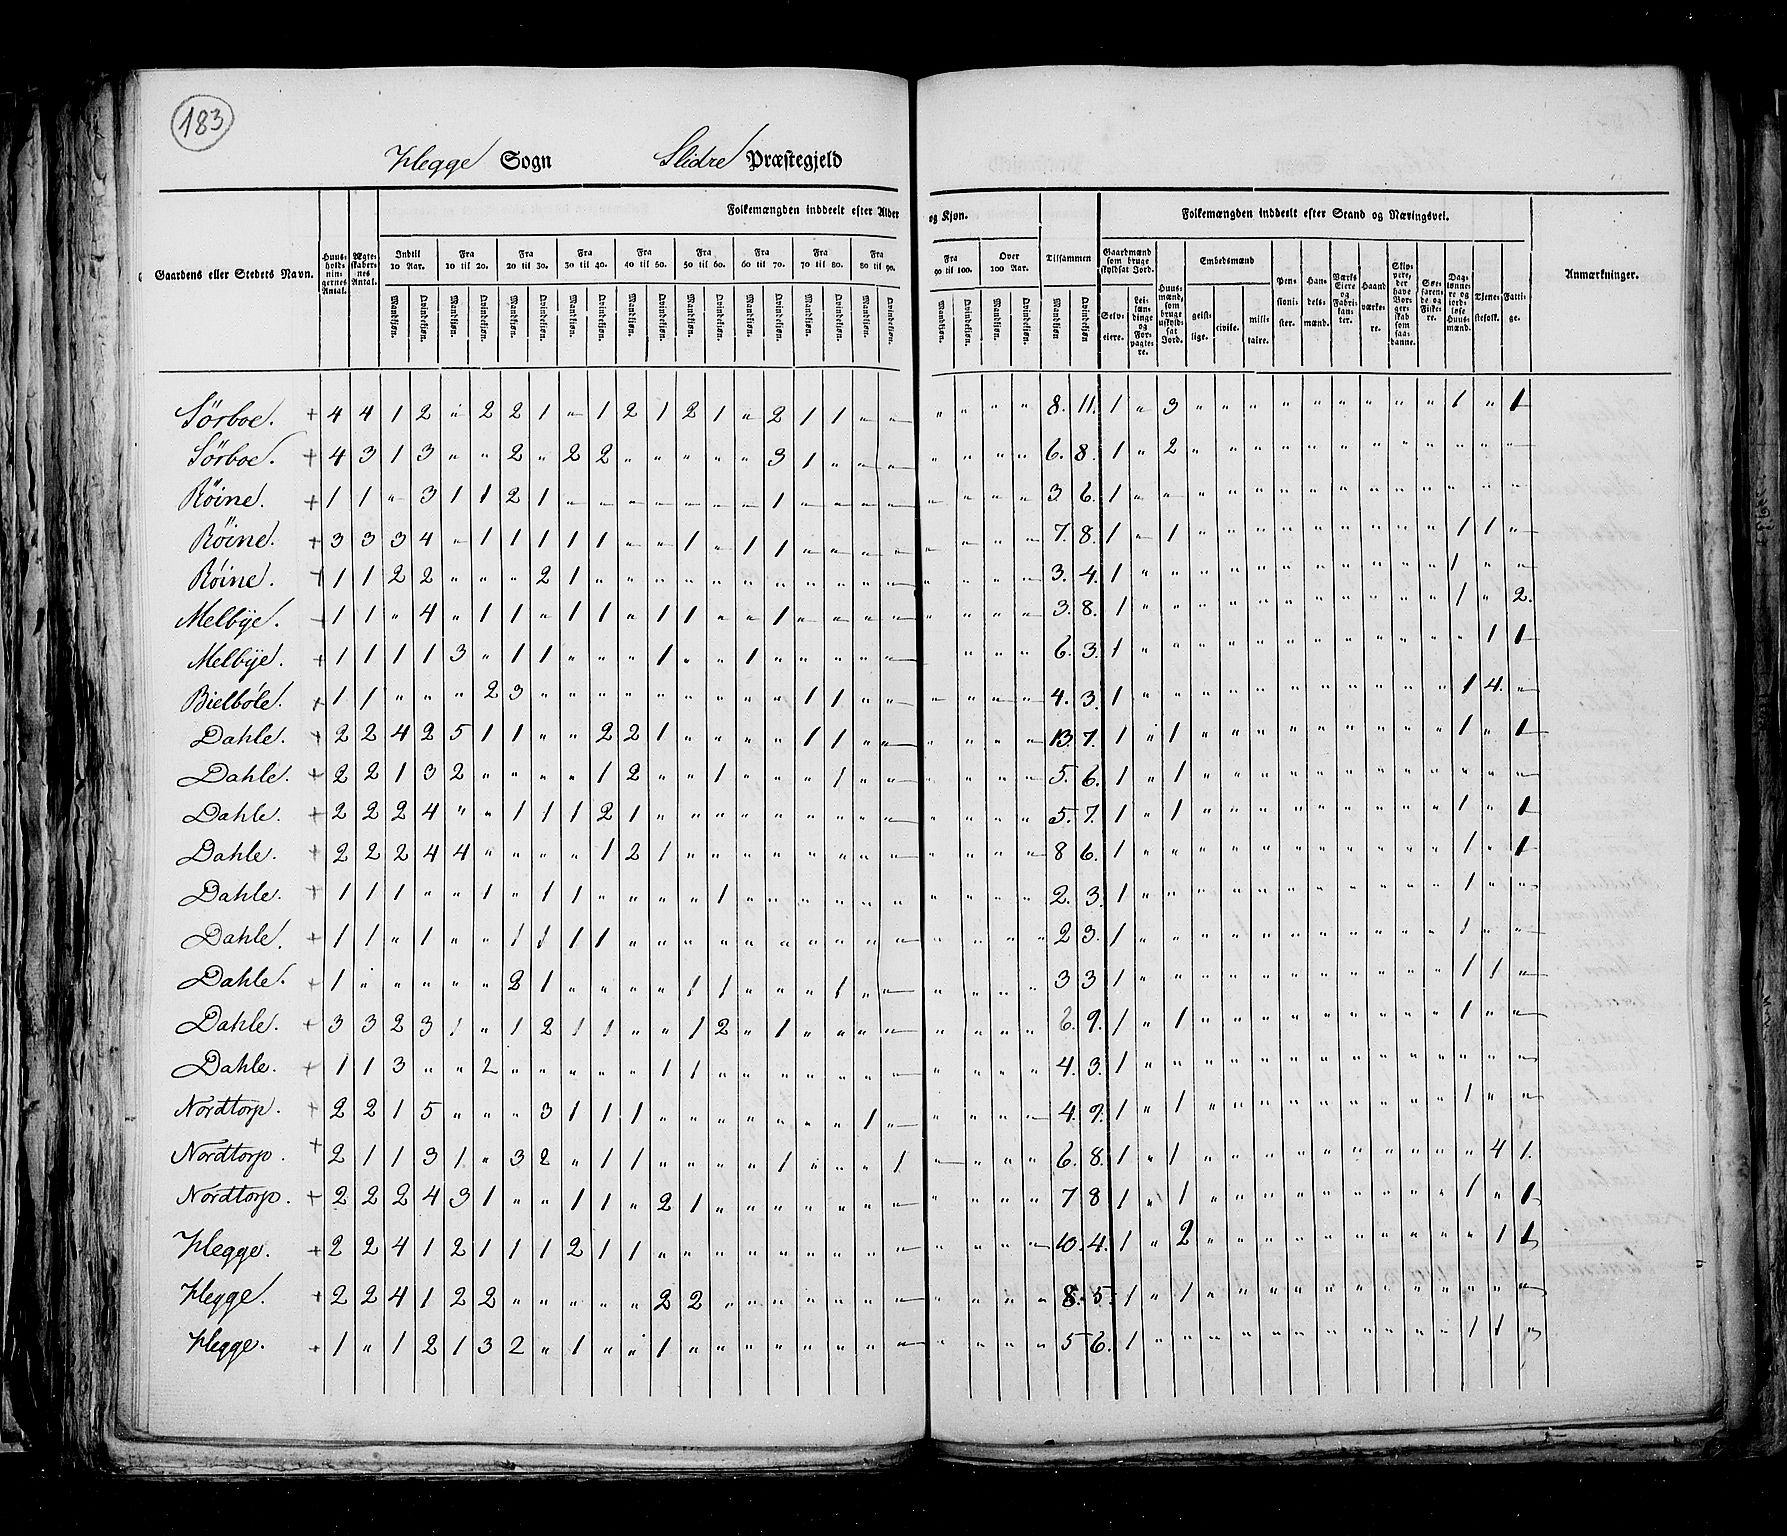 183
Hegge Sogn Slidre Præstegjeld
Folkemængden inddeelt efter Alder og Kjøn. Folkemængden inddeelt efter Stand og Næringsvei.
Gaardens eller Stedets Navn. Huusholdningernes Antal. Ægteskabernes Antal. Indtil 10 Aar. Fra 10 til 20. Fra 20 til 30. Fra 30 til 40. Fra 40 til 50. Fra 50 til 60. Fra 60 til 70. Fra 70 til 80. Fra 80 til 90. Fra 90 til 100. Over 100 Aar. Tilsammen Gaardmænd som bruge skyldsat Jord. Huusmænd, som bruge uskyldsat Jord. Embedsmænd Pensionister. Handelsmænd. Værks Eiere og Fabrikanter. Haandværkere. Skippere, der have Borgerskab som saadanne. Søefarende og Fiskere. Daglønnere og jordløse Huusmænd. Tjenestefolk. Fattige. Anmærkninger.
Mandkjøn. Qvindekjøn. Mandkjøn. Qvindekjøn. Mandkjøn. Qvindekjøn. Mandkjøn. Qvindekjøn. Mandkjøn. Qvindekjøn. Mandkjøn. Qvindekjøn. Mandkjøn. Qvindekjøn. Mandkjøn. Qvindekjøn. Mandkjøn. Qvindekjøn. Mandkjøn. Qvindekjøn. Mandkjøn. Qvindekjøn. Mandkjøn Qvindekjøn Selveiere. Leilændinge og Forpagtere. geistlige. civile. militaire.
Sörboe. + 4 4 1 2 " 2 2 1 " 1 2 1 2 1 " 2 1 1 " " " " " " 8. 11. 1 " 3 " " " " " " " " " 1 " 1
Sörboe. + 4 3 1 3 " " 2 " 2 2 " " " " " 3 1 " " " " " " " 6. 8. 1 " 2 " " " " " " " " " " " "
Röine. + 1 1 " 3 1 1 2 1 " " " " " " " 1 " " " " " " " " 3 6. 1 " " " " " " " " " " " " " "
Röine. + 3 3 3 4 " 1 1 1 1 1 " " 1 " 1 1 " " " " " " " " 7. 8. 1 " 1 " " " " " " " " " 1 1 "
Röine. + 1 1 2 2 " " " 2 1 " " " " " " " " " " " " " " " 3. 4. 1 " " " " " " " " " " " 1 " "
Melbye. + 1 1 " 4 " 1 1 " 1 1 " 1 1 " " 1 " " " " " " " " 3. 8. 1 " " " " " " " " " " " 1 " 2.
Melbye. + 1 1 1 1 3 " 1 1 " " " 1 " " 1 " " " " " " " " 6. 3. 1 " " " " " " " " " " " " 1 1
Bielböle. + 1 1 " " " 2 3 " " " " " " " " " 1 1 " " " " " " 4. 3. 1 " " " " " " " " " " " 1 4. "
Dahle. + 2 2 4 2 5 1 1 " " 2 2 1 " " " " 1 1 " " " " " " 13. 7. 1 " 1 " " " " " " " " " 1 " 1
Dahle. + 2 2 1 3 2 " " " " 1 2 " " 1 " " " 1 " " " " " " 5. 6. 1 " 1 " " " " " " " " " " " "
Dahle. + 2 2 2 4 " " 1 1 1 2 1 " " " " " " " " " " " " " 5. 7. 1 " 1 " " " " " " " " " 1 " 1
Dahle. + 2 2 2 4 4 " " " " 1 2 1 " " " " " " " " " " " " 8 6. 1 " " " " " " " " " " " 1 " 1
Dahle. + 1 1 1 " " 1 " 1 1 " " " " 1 " " " " " " " " " " 2. 3. 1 " " " " " " " " " " " 1 " "
Dahle. + 1 1 " 1 " " 1 1 1 1 " " " " " " " " " " " " " " 2 3. 1 " " " " " " " " " " " 1 " "
Dahle. + 1 " " " " " 2 1 " " " " 1 1 " " " 1 " " " " " " 3 3 1 " " " " " " " " " " " 1 1 "
Dahle. + 3 3 2 3 1 " 1 2 1 1 " " 1 2 " 1 " " " " " " " " 6. 9. 1 " 1 " " " " " " " " " 1 " "
Dahle. + 1 1 3 " " 2 " " " " " 1 1 " " " " " " " " " " " 4. 3. 1 " " " " " " " " " " " " " "
Nordtorp. + 2 2 1 5 " " " 3 1 1 1 " " " " " " " 1 " " " " " 4. 9. 1 " 1 " " " " " " " " " 1 " "
Nordtorp. + 2 1 1 3 1 " 3 2 " 1 1 " " " " 1 " " " 1 " " " " 6. 8. 1 " 1 " " " " " " " " " " 4 1.
Nordtorp. + 2 2 2 4 3 1 " " 1 1 " 2 1 " " " " " " " " " " " 7 8 1 " 1 " " " " " " " " " 1 " 1
Hegge. + 2 2 4 1 2 1 1 1 2 1 1 " " " " " " " " " " " " " 10. 4. 1 " 2 " " " " " " " " " " 1 1
Hegge. + 2 2 4 1 2 2 " " " " " 2 2 " " " " " " " " " " " 8. 5. 1 " 1 " " " " " " " " " " " "
Hegge. + 1 " 1 2 1 3 2 " 1 " " 1 " " " " " " " " " " " " 5 6. 1 " " " " " " " " " " " 1 1 "